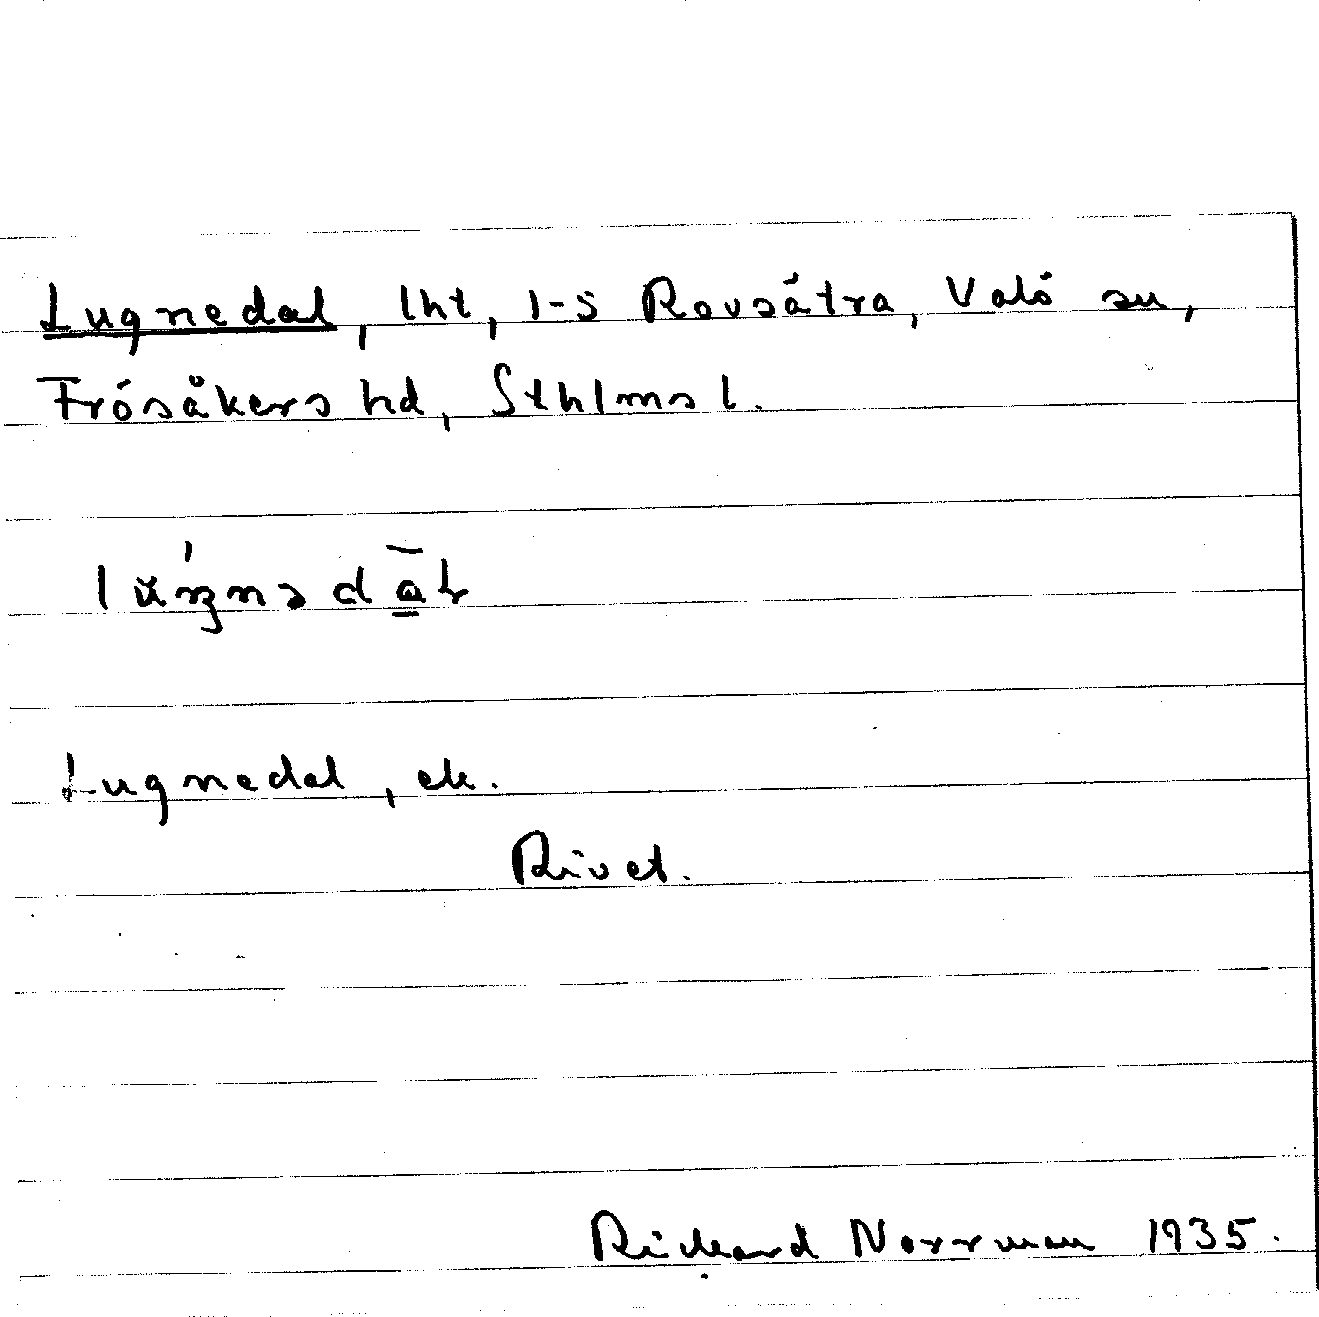 Lugnedal, lht, 1-5 Rovsätra, Valö sn,
Frösåkers hd, Sthlms l.
Lugnedal, ek.
Rivet.
Rickard Norrman 1935.